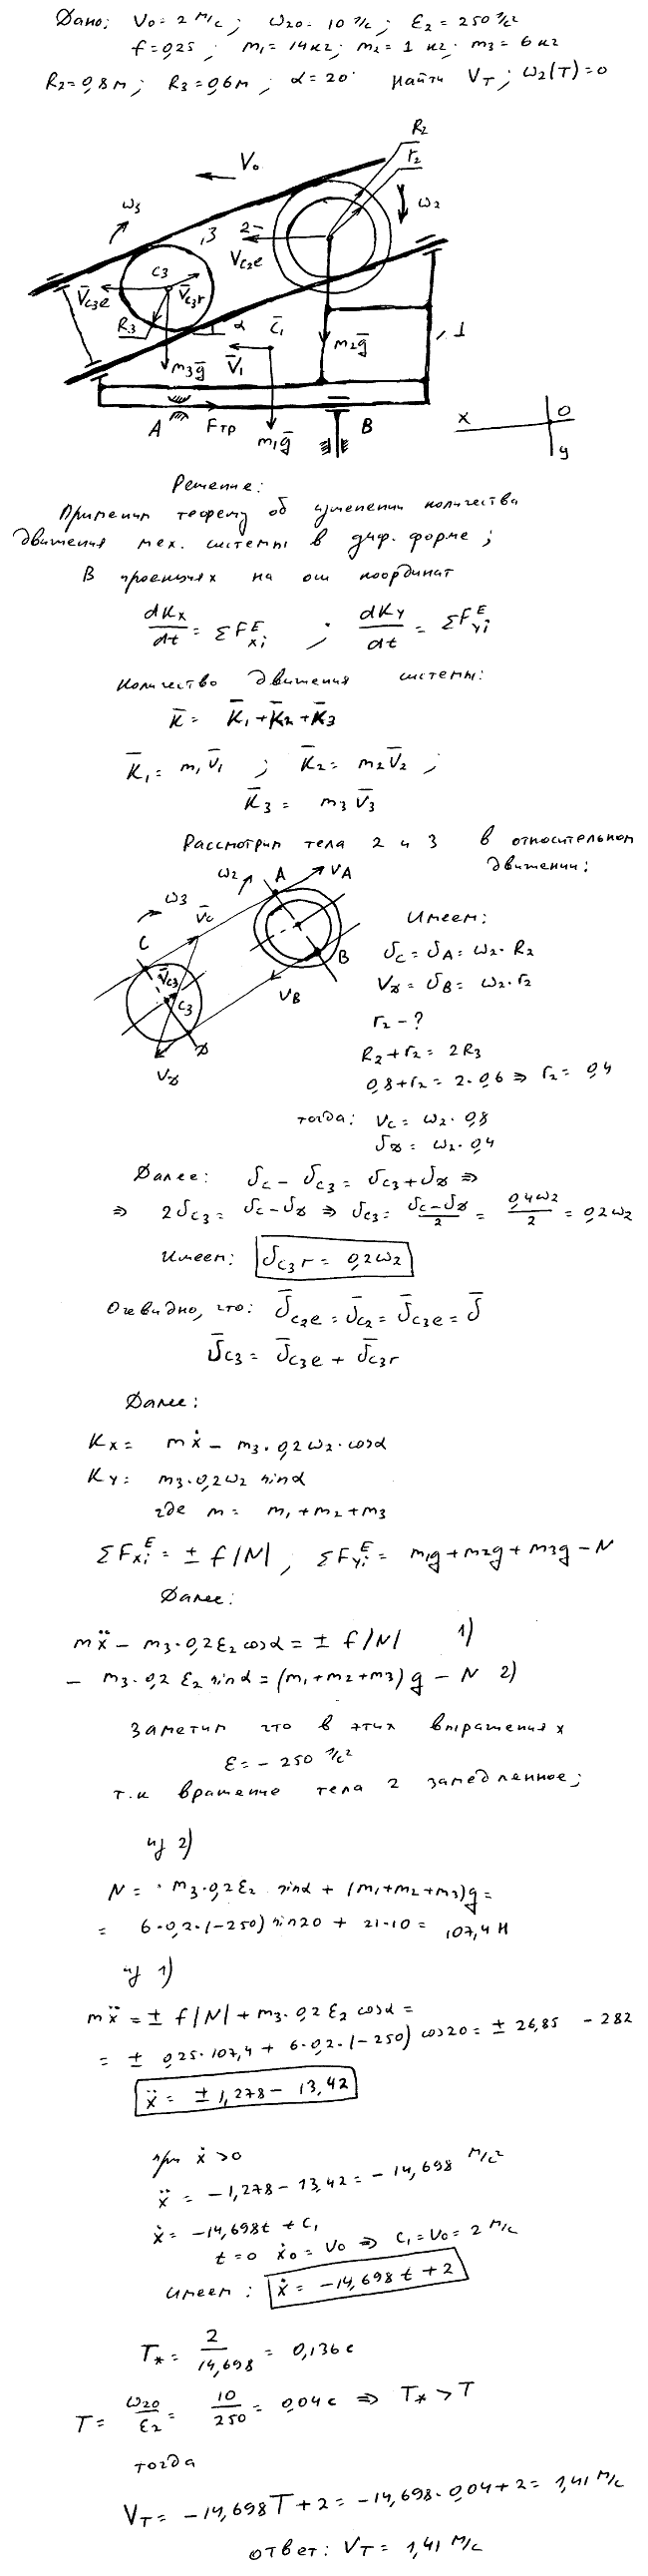 Дано: V₀ = 2 м/с; ω₂₀ = 10 1/с; ε₂ = 250 1/с²
f = 0,25; m₁ = 14 кг; m₂ = 1 кг; m₃ = 6 кг
R₂ = 0,8 м; R₃ = 0,6 м; α = 20° Найти V_T; ω₂(T) = 0
R₂
r₂
V₀
ω₃
ω₂
3
2
V̄c₂e
c₃
V̄c₃e
V̄c₃r
R₃
α
C̄₁
m₂ḡ
1
m₃ḡ
V̄₁
A
Fтр
m₁ḡ
B
x
O
y
Решение:
Применим теорему об изменении количества
движения мех. системы в диф. форме;
В проекциях на оси координат
dKx/dt = ΣFᴱxi ; dKy/dt = ΣFᴱyi
Количество движения системы:
K̄ = K̄₁ + K̄₂ + K̄₃
K̄₁ = m₁V̄₁ ; K̄₂ = m₂V̄₂ ;
K̄₃ = m₃V̄₃
Рассмотрим тела 2 и 3 в относительном
движении:
ω₂
A
V_A
ω₃
V̄c
C
V̄c₃
c₃
B
V_B
D
V_D
Имеем:
Vc = V_A = ω₂·R₂
V_D = V_B = ω₂·r₂
r₂ - ?
R₂ + r₂ = 2R₃
0,8 + r₂ = 2·0,6 ⇒ r₂ = 0,4
тогда: Vc = ω₂·0,8
V_D = ω₂·0,4
Далее: Vc - Vc₃ = Vc₃ + V_D ⇒
⇒ 2Vc₃ = Vc - V_D ⇒ Vc₃ = (Vc - V_D)/2 = 0,4ω₂/2 = 0,2ω₂
Имеем: Vc₃r = 0,2ω₂
Очевидно, что: V̄c₂e = V̄c₂ = V̄c₃e = V̄
V̄c₃ = V̄c₃e + V̄c₃r
Далее:
Kx = mẋ - m₃·0,2ω₂·cosα
Ky = m₃·0,2ω₂ sinα
где m = m₁ + m₂ + m₃
ΣFᴱxi = ± f|N| ; ΣFᴱyi = m₁g + m₂g + m₃g - N
Далее:
mẍ - m₃·0,2ε₂cosα = ± f|N| 1)
- m₃·0,2 ε₂ sinα = (m₁+m₂+m₃)g - N 2)
Заметим что в этих выражениях
ε = - 250 1/с²
т.к вращение тела 2 замедленное;
из 2)
N = m₃·0,2ε₂ sinα + (m₁+m₂+m₃)g =
= 6·0,2·(-250) sin20 + 21·10 = 107,4 Н
из 1)
mẍ = ± f|N| + m₃·0,2 ε₂ cosα =
= ± 0,25·107,4 + 6·0,2·(-250) cos20 = ± 26,85 - 282
ẍ = ± 1,278 - 13,42
при ẋ > 0
ẍ = -1,278 - 13,42 = -14,698 м/с²
ẋ = -14,698t + C₁
t = 0 ẋ₀ = V₀ ⇒ C₁ = V₀ = 2 м/с
Имеем: ẋ = -14,698 t + 2
T* = 2/14,698 = 0,136 с
T = ω₂₀/ε₂ = 10/250 = 0,04 с ⇒ T* > T
тогда
V_T = -14,698T + 2 = -14,698·0,04 + 2 = 1,41 м/с
ответ: V_T = 1,41 м/с